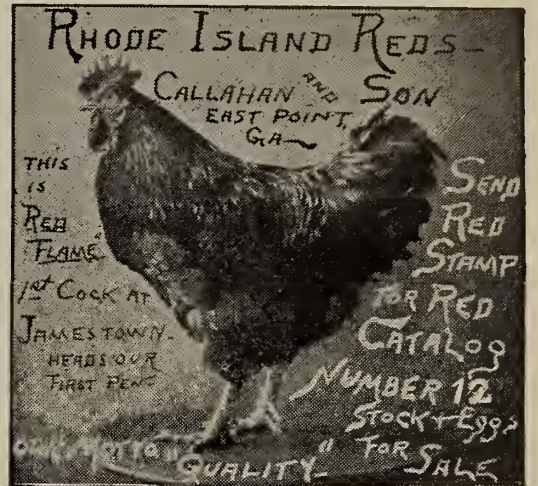 RHODE ISLAND REDS-
CALLAHAN AND SON
EAST POINT,
GA
THIS
IS
"RED
FLAME"
1st COCK AT
JAMESTOWN.
HEADS OUR
FIRST PEN-
SEND
RED
STAMP
FOR RED
CATALOG
NUMBER 12
STOCK + Eggs
FOR SALE
OUR MOTTO "QUALITY"